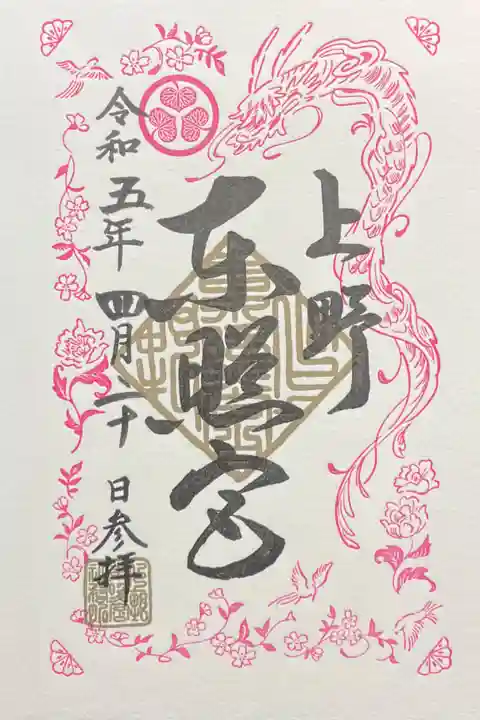 上野
東照宮
令和五年四月二十日参拝